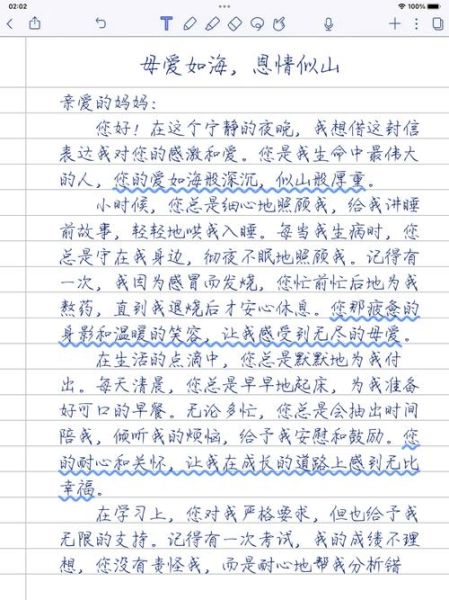 02:02
100%
T
母爱如海，恩情似山
亲爱的妈妈：
您好！在这个宁静的夜晚，我想借这封信
表达我对您的感激和爱。您是我生命中最伟大
的人，您的爱如海般深沉，似山般厚重。
小时候，您总是细心地照顾我，给我讲睡
前故事，轻轻地哄我入睡。每当我生病时，您
总是守在我身边，彻夜不眠地照顾我。记得有
一次，我因为感冒而发烧，您忙前忙后地为我
熬药，直到我退烧后才安心休息。您那疲惫的
身影和温暖的笑容，让我感受到无尽的母爱。
在生活的点滴中，您总是默默地为我付
出。每天清晨，您总是早早地起床，为我准备
好可口的早餐。无论多忙，您总是会抽出时间
陪我，倾听我的烦恼，给予我安慰和鼓励。您
的耐心和关怀，让我在成长的道路上感到无比
幸福。
在学习上，您对我严格要求，但也给予我
无限的支持。记得有一次考试，我的成绩不理
想，您没有责怪我，而是耐心地帮我分析错